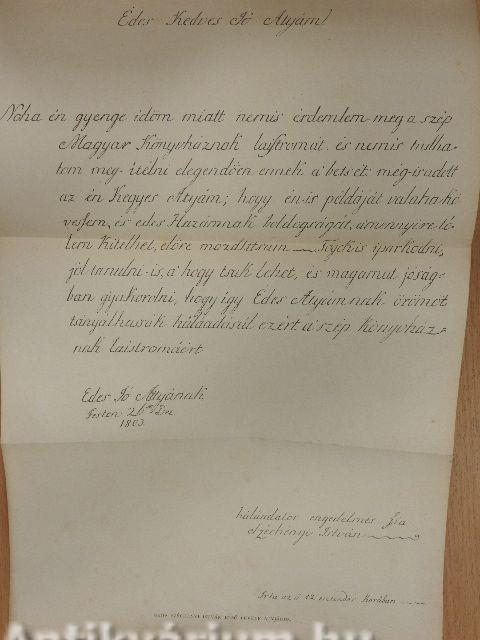 Édes Kedves Jó Atyám!
Noha én gyenge időm miatt nemis érdemlem meg a szép
Magyar Könyvháznak lajstromát, és nemis tudha-
tom meg-ítélni elegendően ennek a' betsét: még-is adott
az én Kegyes Atyám; hogy én-is példáját valaha kö-
vessem, és édes Hazámnak boldogságát, a mennyire tő-
lem kitelhet, előre mozdítsam
is iparkodni,
jól tanulni-is, a' hogy tsak lehet, és magamat jóság-
ban gyakorolni, hogy így Édes Atyámnak örömöt
tsinálhassak háláadásúl ezért a' szép Könyvház-
nak laistromáért
Édes Jó Atyámnak
Pesten 26
1803
háláadator engedelmes fia
Széchényi István
Írta az ő 12 esztendős korában
GRÓF SZÉCHENYI ISTVÁN ELSŐ LEVELE ATYJÁHOZ.
Antikvárium.hu